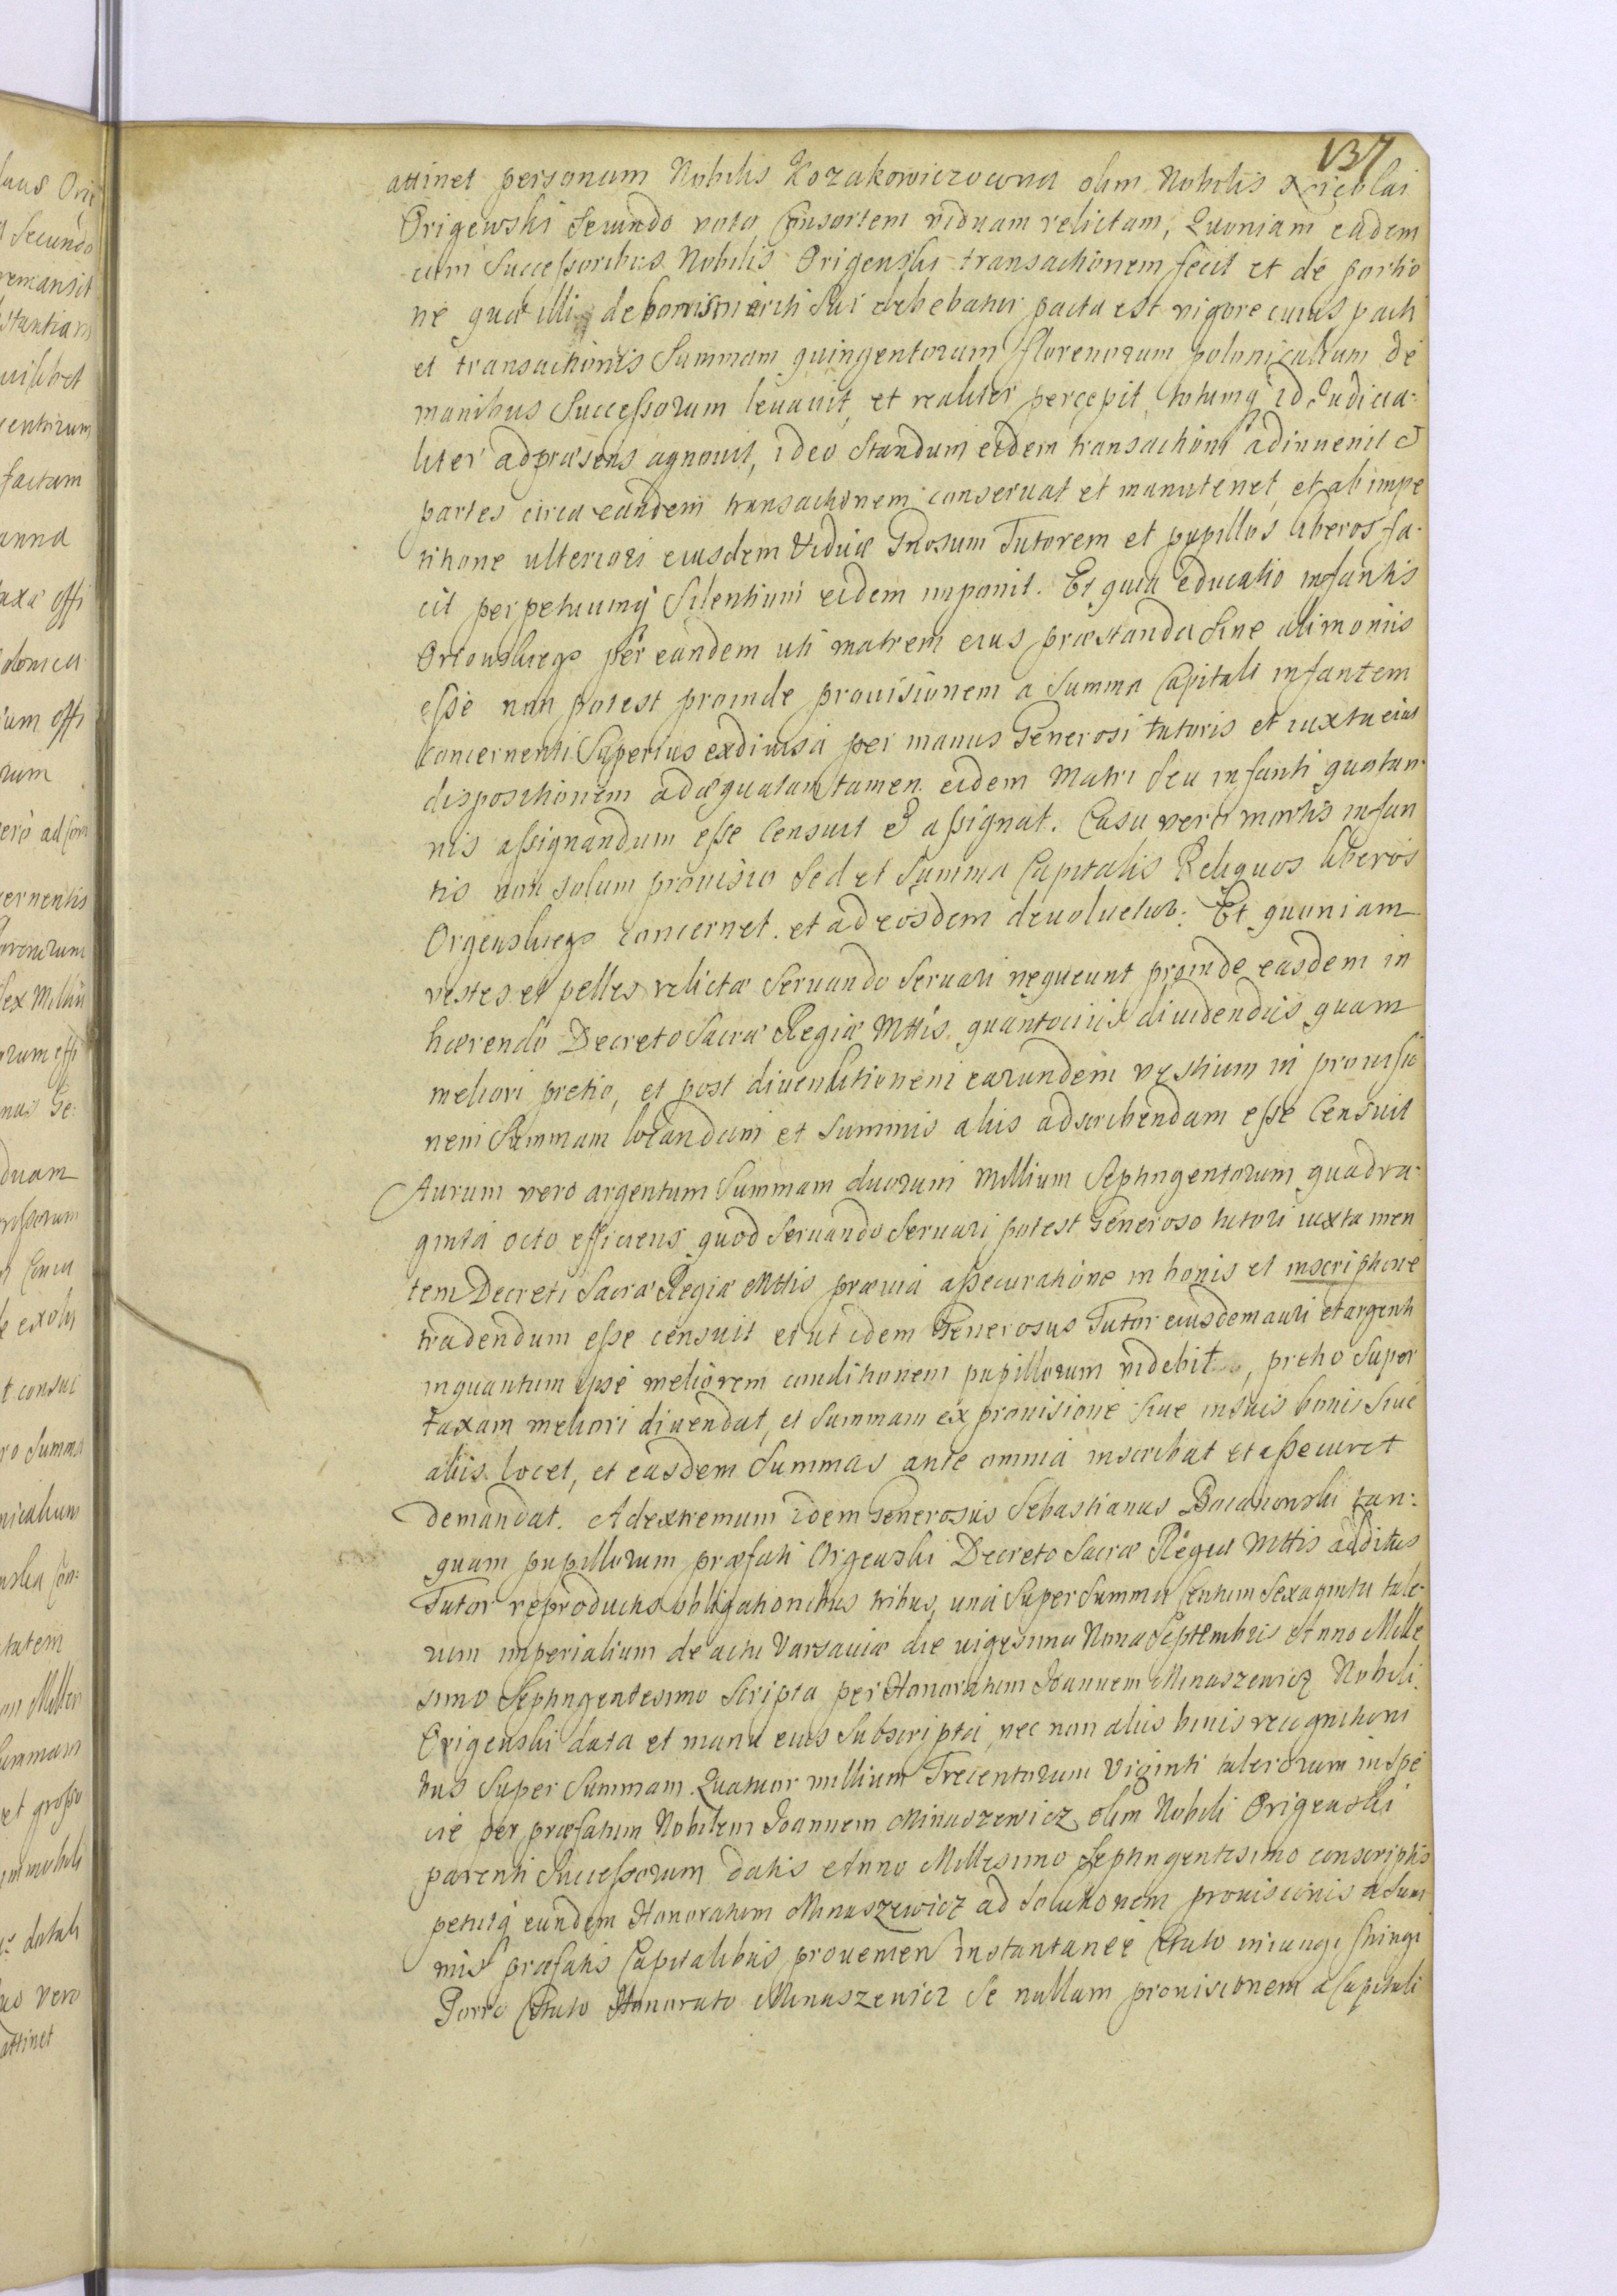 137
attinet personam Nobilis Kozakowiczowna olim Nobilis Nicolai
Origewski secundo voto Consortem viduam relictam, Quoniam eadem
cum Successoribus Nobilis Origewski transactionem fecit et de portio
ne quæ illi de bonis mariti sui debebatur pacta est vigore cuius pacti
et transactionis Summam quingentorum florenorum polonicalium de
manibus Successorum levavit, et realiter percepit, totumq id Judicia-
liter ad præsens agnovit, ideo standum eidem transactioni adinvenit et
partes circa eandem transactionem conservat et manutenet, et ab impe
titione ulteriori eiusdem Viduæ Gnosum Tutorem et pupillos liberos fa-
cit perpetuumq Silentium eidem imponit. Et quia educatio infantis
per eandem uti matrem eius præstanda sine alimoniis
esse non potest proinde provisionem a Summa Capitali infantem
concernenti Superius per manus Generosi tutoris et iuxta eius
dispositionem adæquatam tamen eidem Matri seu infanti quotan-
nis assignandum esse Censuit et assignat. Casu vero mortis infan
tis non solum provisio sed et Summa Capitalis Reliquos liberos
Orgewskiego concernet et ad eosdem devoluetur. Et quoniam
vestes et pelles relictæ Servando Servari nequeunt proinde easdem in
hærendo Decreto Sacræ Regiæ Mttis quantocius dividendis quam
meliori pretio, et post divenditionem earundem vestium in provisio
nem Summam locandam et Summis aliis adscribendam esse Censuit
Aurum vero argentum Summam duorum Millium Septingentorum quadra-
ginta octo efficiens quod Servando Servari potest Generoso tutori iuxta men
tem Decreti Sacræ Regiæ Mttis prævia assecuratione in bonis et inscriptione
tradendum esse censuit et ut idem Generosus Tutor eiusdem auri et argenti
inquantum ipse meliorem conditionem pupillorum videbit, pretio super
taxam meliori divendat, et Summam ex provisione sive in suis bonis sive
aliis locet, et easdem Summas ante omnia inscribat et assecuret
demandat. Ad extremum idem Generosus Sebastianus tan-
quam pupillorum præfati Orgewski Decreto Sacræ Regiæ Mttis additus
Tutor reproductis obligationibus tribus, una Super Summa Centum Sexaginta tale-
rum imperialium de actu Varsaviæ die vigesima Nona Septembris Anno Mille
simo Septingentesimo scripta per Honoratum Joannem Minaszewicz Nobili
Origewski data et manu eius Subscripta, nec non aliis binis recognitioni
bus Super Summam Quatuor millium Trecentorum Viginti talerorum in spe
cie per præfatum Nobilem Joannem Minaszewicz olim Nobili Origewski
parenti Successorum datis Anno Millesimo Septingentesimo conscriptis
petiitq eundem Honoratum Minaszewicz ad solutionem provisionis a Sum
mis præfatis Capitalibus provenien instantanee Citato iniungi stringi
Porro Citato Honorato Minaszewicz se nullam provisionem a Capitali